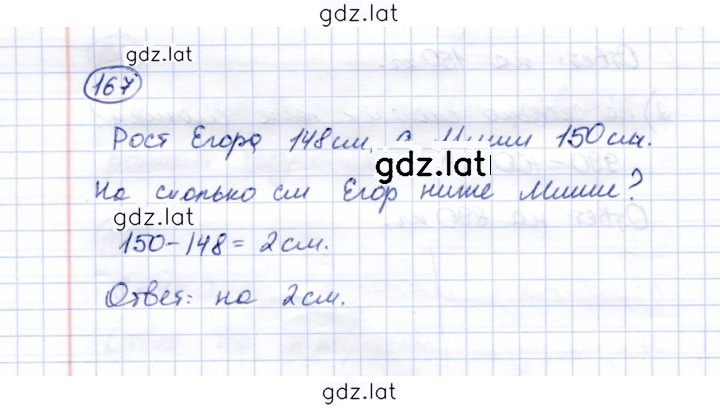 gdz.lat
gdz.lat
167
Рост Егора 148см, а Миши 150см.
gdz.lat
На сколько см Егор ниже Миши?
gdz.lat
150-148= 2см.
Ответ: на 2см.
gdz.lat